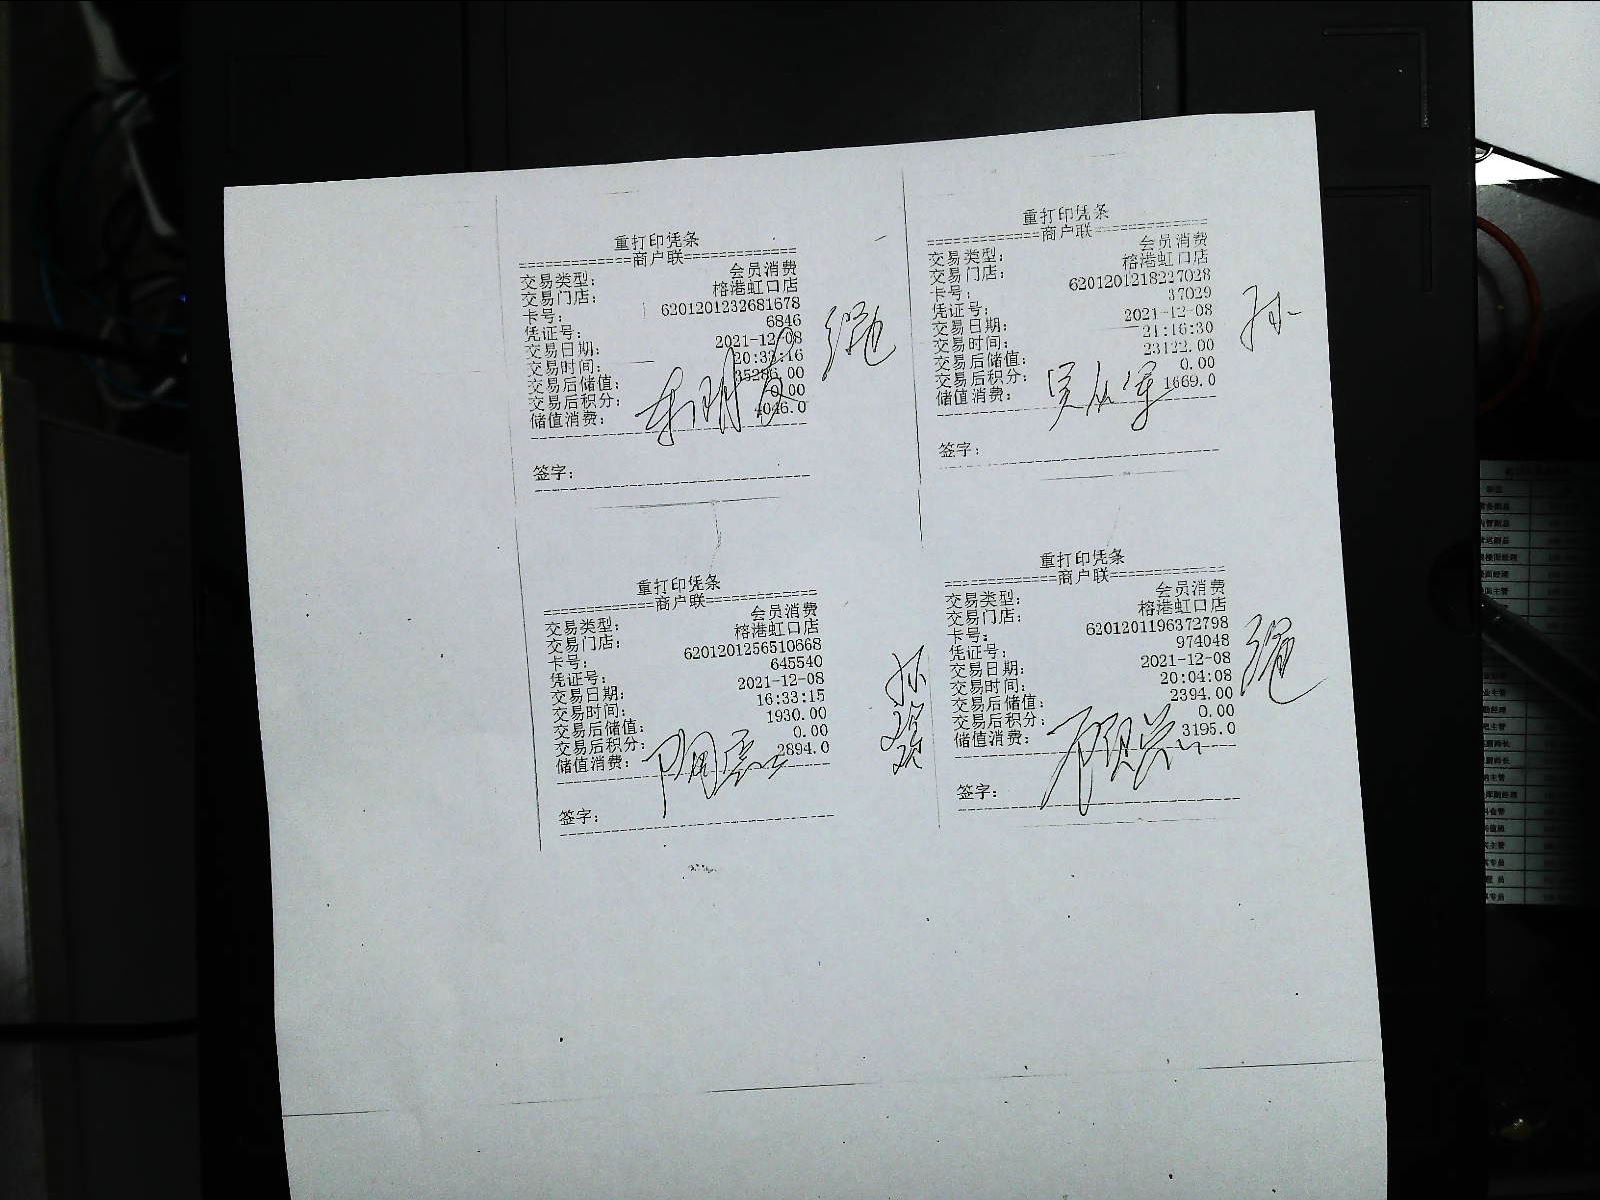 重打印凭条
============商户联============
交易类型： 会员消费
交易门店： 榕港虹口店
卡号： 6201201232681678
凭证号： 6846
交易日期： 2021-12-08
交易时间： 20:33:16
交易后储值： 35286.00
交易后积分： 0.00
储值消费： 4046.0
签字：
重打印凭条
============商户联============
交易类型： 会员消费
交易门店： 榕港虹口店
卡号： 6201201218227028
凭证号： 37029
交易日期： 2021-12-08
交易时间： 21:16:30
交易后储值： 23122.00
交易后积分： 0.00
储值消费： 1669.0
孙
签字：
重打印凭条
============商户联============
交易类型： 会员消费
交易门店： 榕港虹口店
卡号： 6201201256510668
凭证号： 645540
交易日期： 2021-12-08
交易时间： 16:33:15
交易后储值： 1930.00
交易后积分： 0.00
储值消费： 2894.0
孙
签字：
重打印凭条
============商户联============
交易类型： 会员消费
交易门店： 榕港虹口店
卡号： 6201201196372798
凭证号： 974048
交易日期： 2021-12-08
交易时间： 20:04:08
交易后储值： 2394.00
交易后积分： 0.00
储值消费： 3195.0
签字：